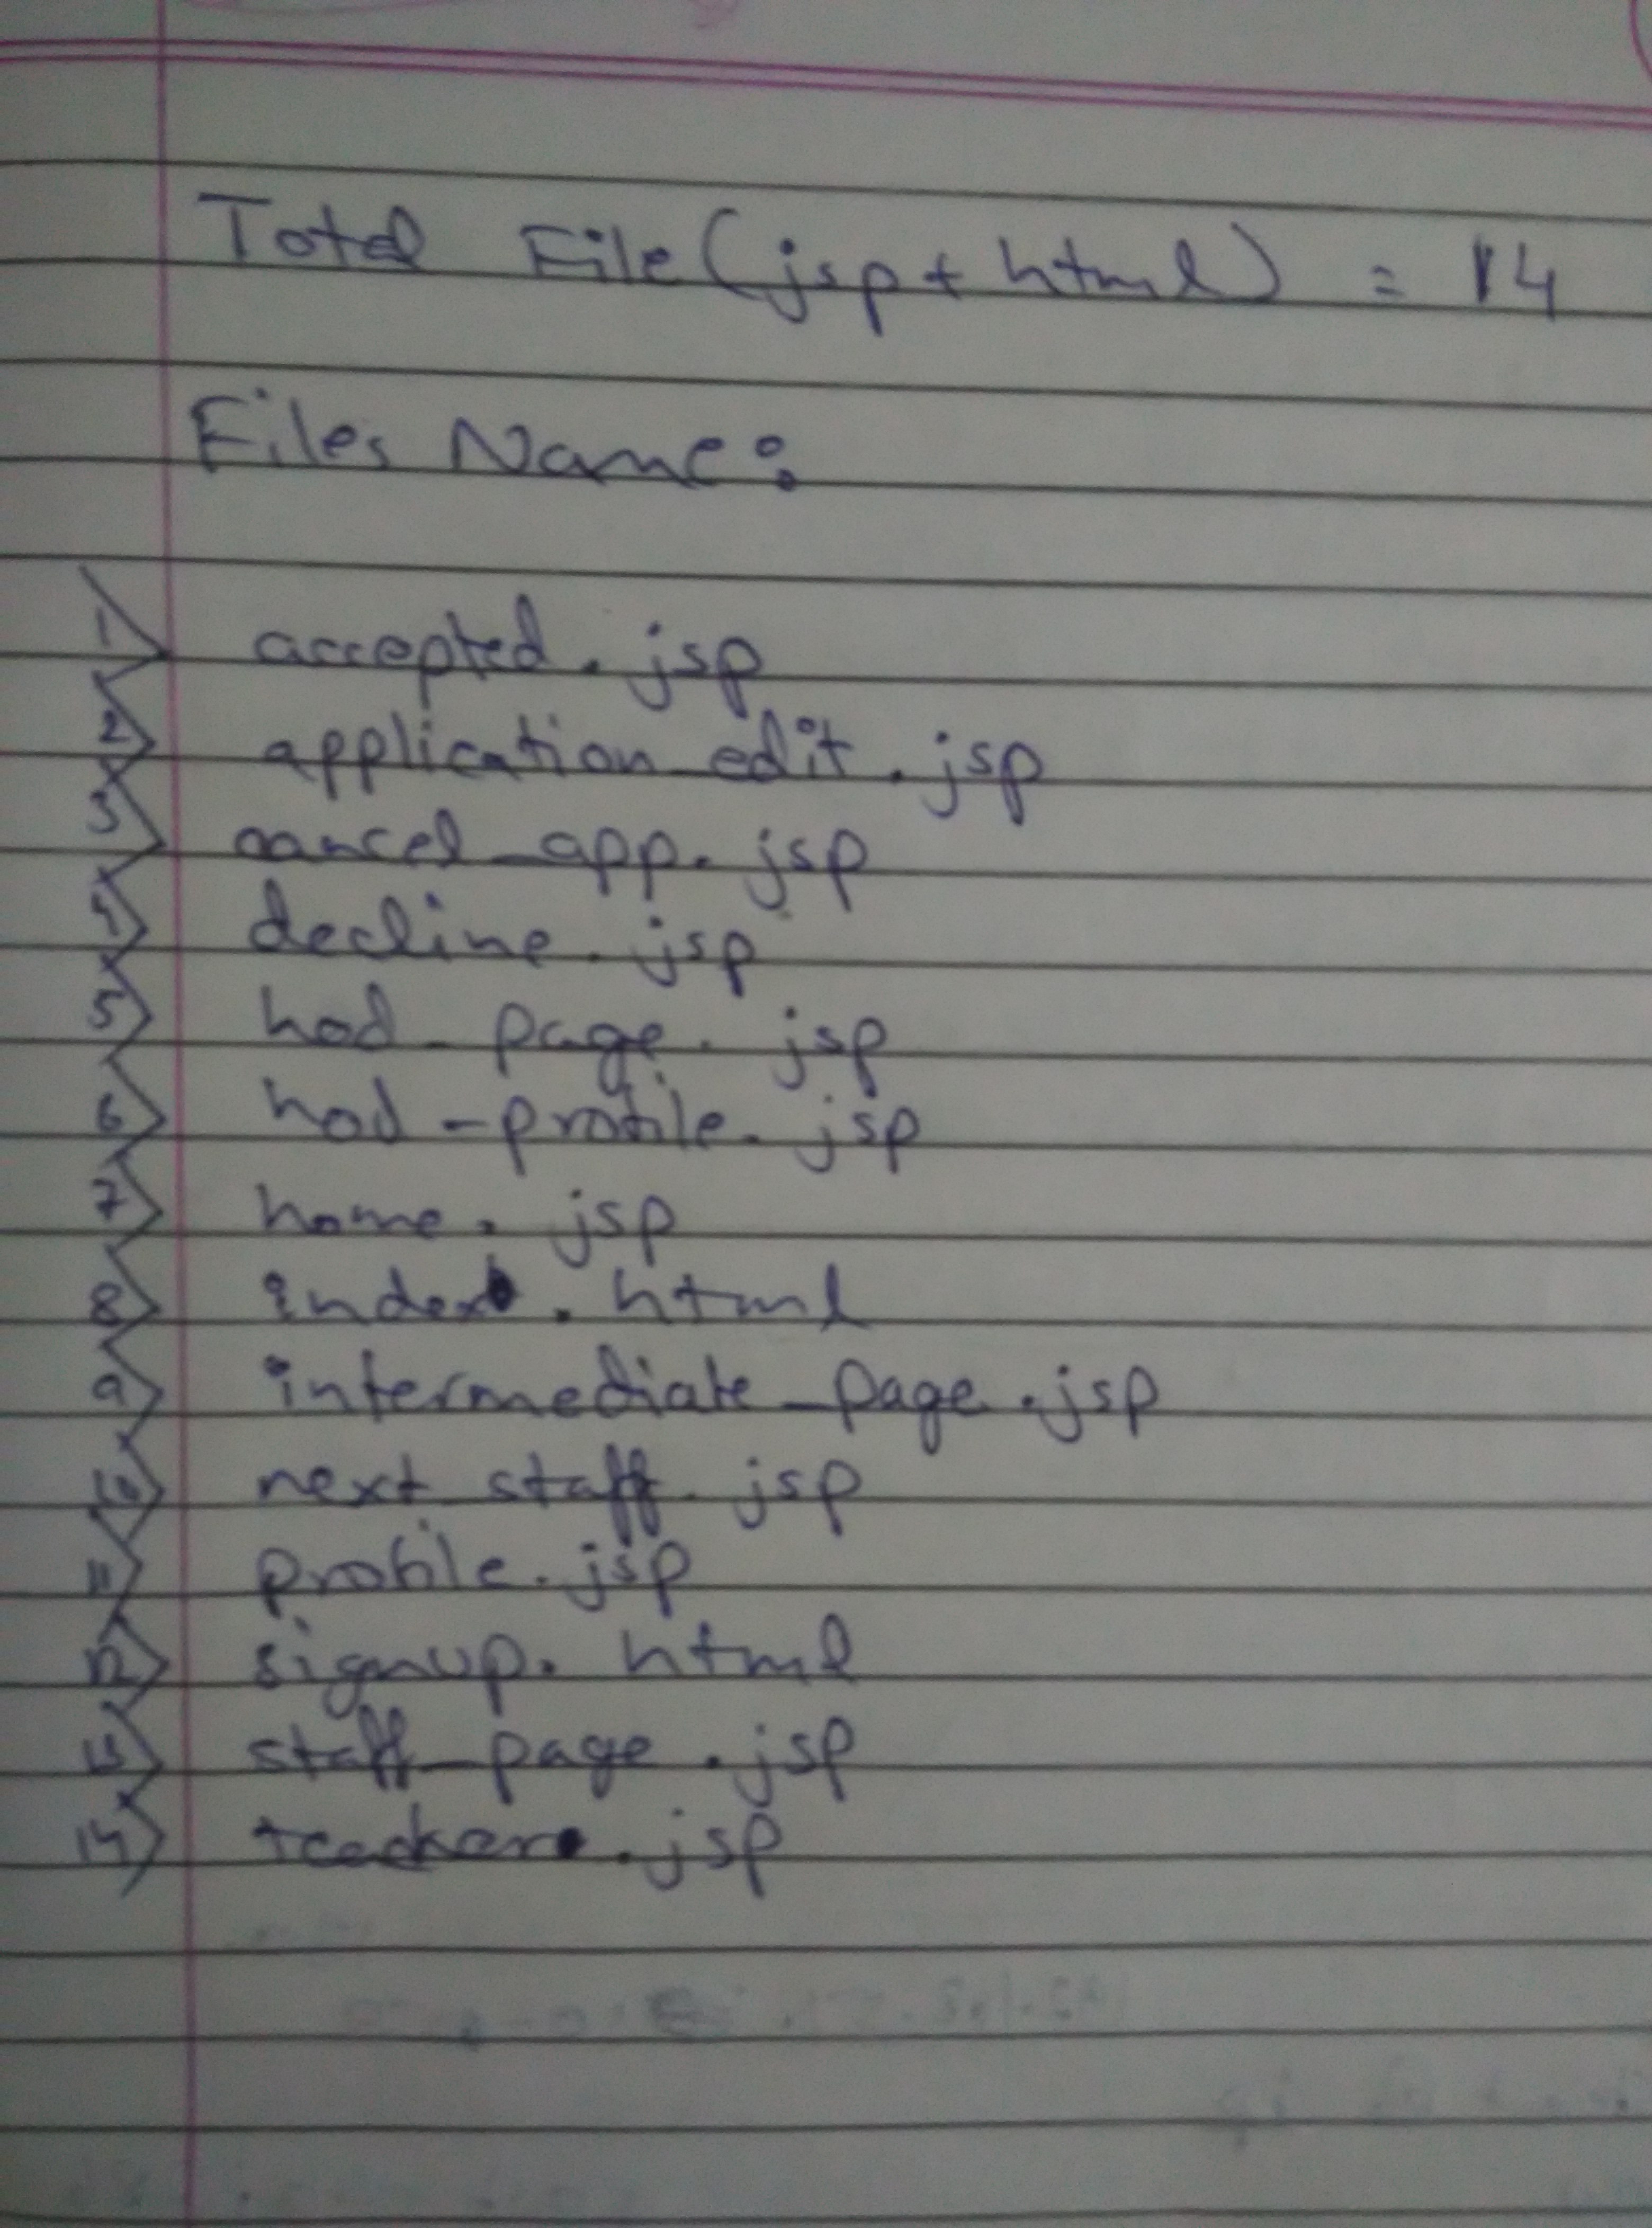 Total File (jsp + html) = 14
Files Name:
1> accepted.jsp
2> application_edit.jsp
3> cancel_app.jsp
4> decline.jsp
5> hod_page.jsp
6> hod-profile.jsp
7> home.jsp
8> index.html
9> intermediate_page.jsp
10> next_staff.jsp
11> profile.jsp
12> signup.html
13> staff_page.jsp
14> teacher.jsp